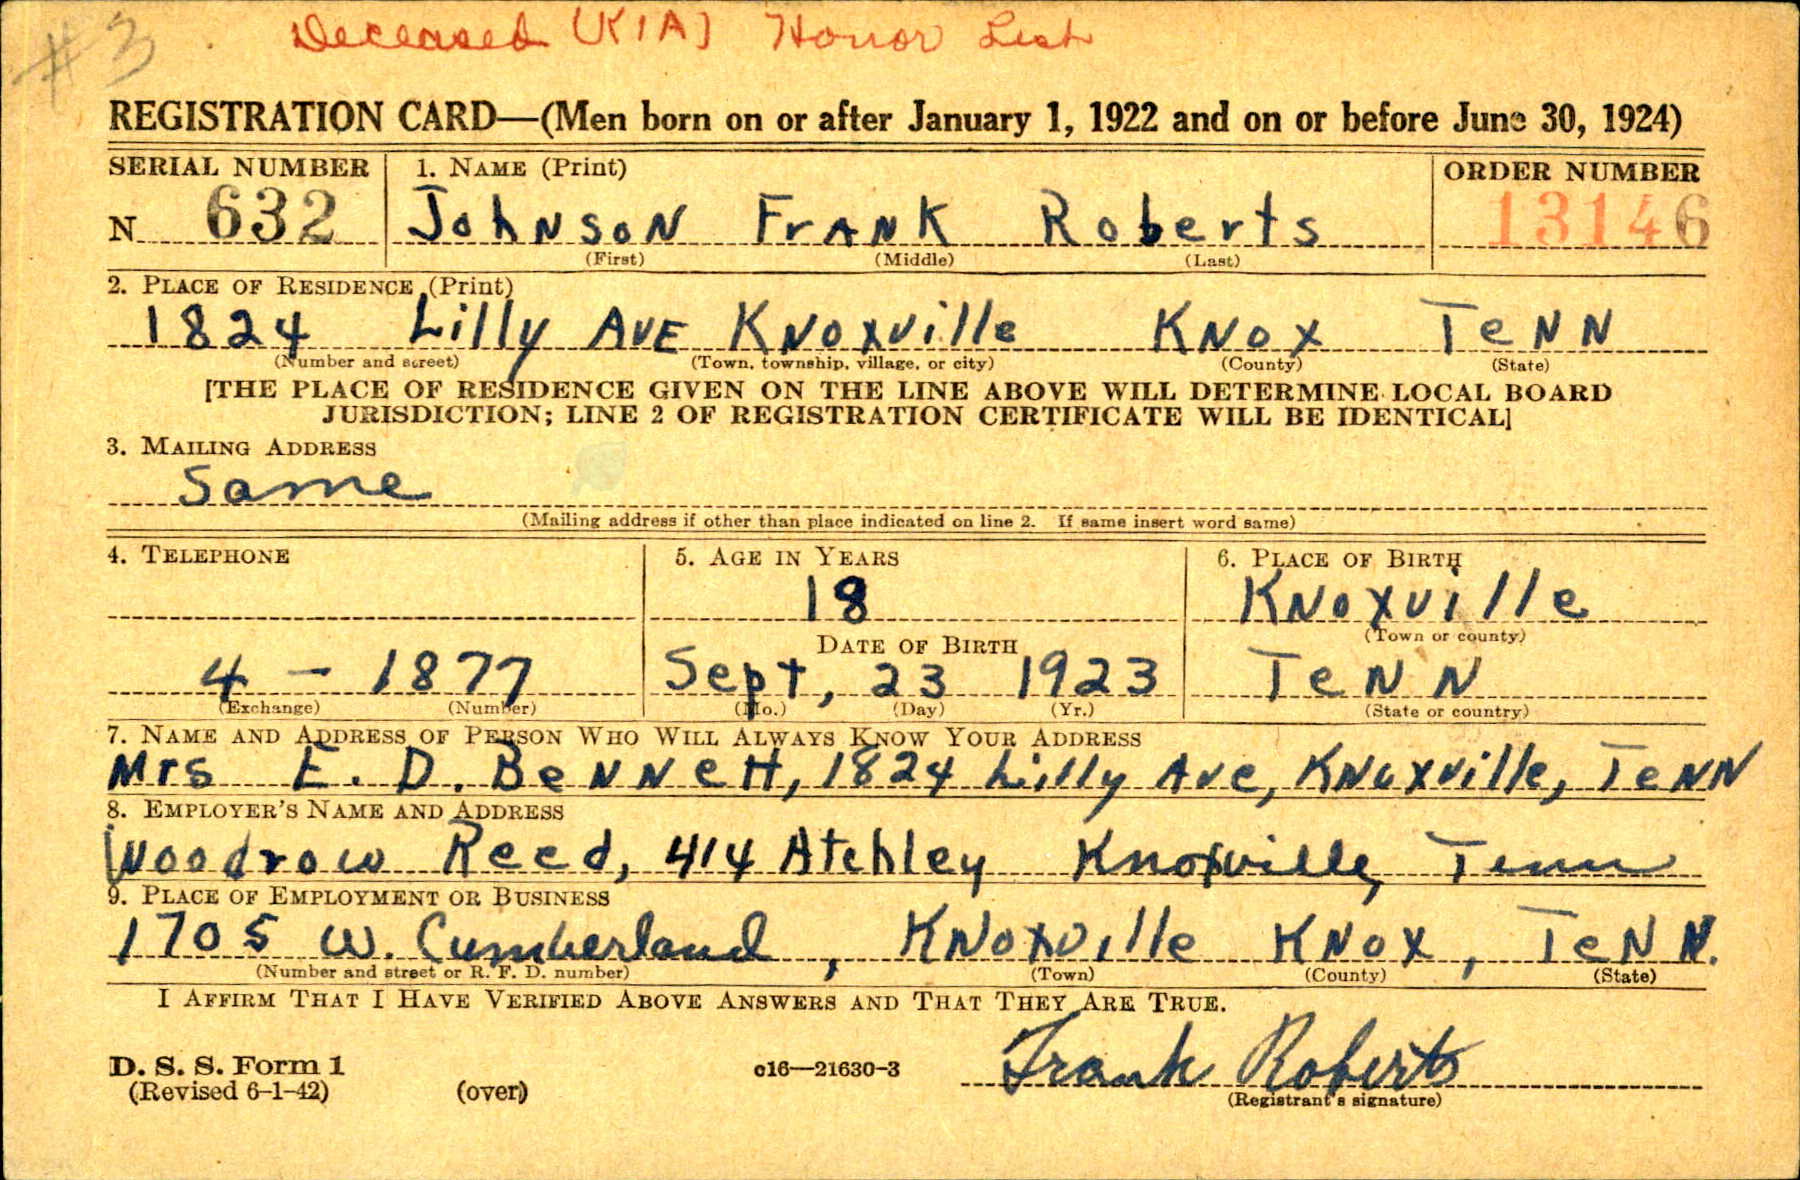 #3 Deceased (KIA) Honor List
REGISTRATION CARD—(Men born on or after January 1, 1922 and on or before June 30, 1924)
SERIAL NUMBER 1. NAME (Print) ORDER NUMBER
N 632 Johnson Frank Roberts 13146
(First) (Middle) (Last)
2. PLACE OF RESIDENCE (Print)
1824 Lilly Ave Knoxville Knox Tenn
(Number and street) (Town, township, village, or city) (County) (State)
[THE PLACE OF RESIDENCE GIVEN ON THE LINE ABOVE WILL DETERMINE LOCAL BOARD
JURISDICTION; LINE 2 OF REGISTRATION CERTIFICATE WILL BE IDENTICAL]
3. MAILING ADDRESS
Same
(Mailing address if other than place indicated on line 2. If same insert word same)
4. TELEPHONE 5. AGE IN YEARS 6. PLACE OF BIRTH
18 Knoxville
DATE OF BIRTH (Town or county)
4 - 1877 Sept, 23 1923 Tenn
(Exchange) (Number) (Mo.) (Day) (Yr.) (State or country)
7. NAME AND ADDRESS OF PERSON WHO WILL ALWAYS KNOW YOUR ADDRESS
Mrs E. D. Bennett, 1824 Lilly Ave, Knoxville, Tenn
8. EMPLOYER'S NAME AND ADDRESS
Woodrow Reed, 414 Atchley Knoxville, Tenn
9. PLACE OF EMPLOYMENT OR BUSINESS
1705 W. Cumberland, Knoxville Knox, Tenn.
(Number and street or R. F. D. number) (Town) (County) (State)
I AFFIRM THAT I HAVE VERIFIED ABOVE ANSWERS AND THAT THEY ARE TRUE.
D. S. S. Form 1 c16—21630-3 Frank Roberts
(Revised 6-1-42) (over) (Registrant's signature)